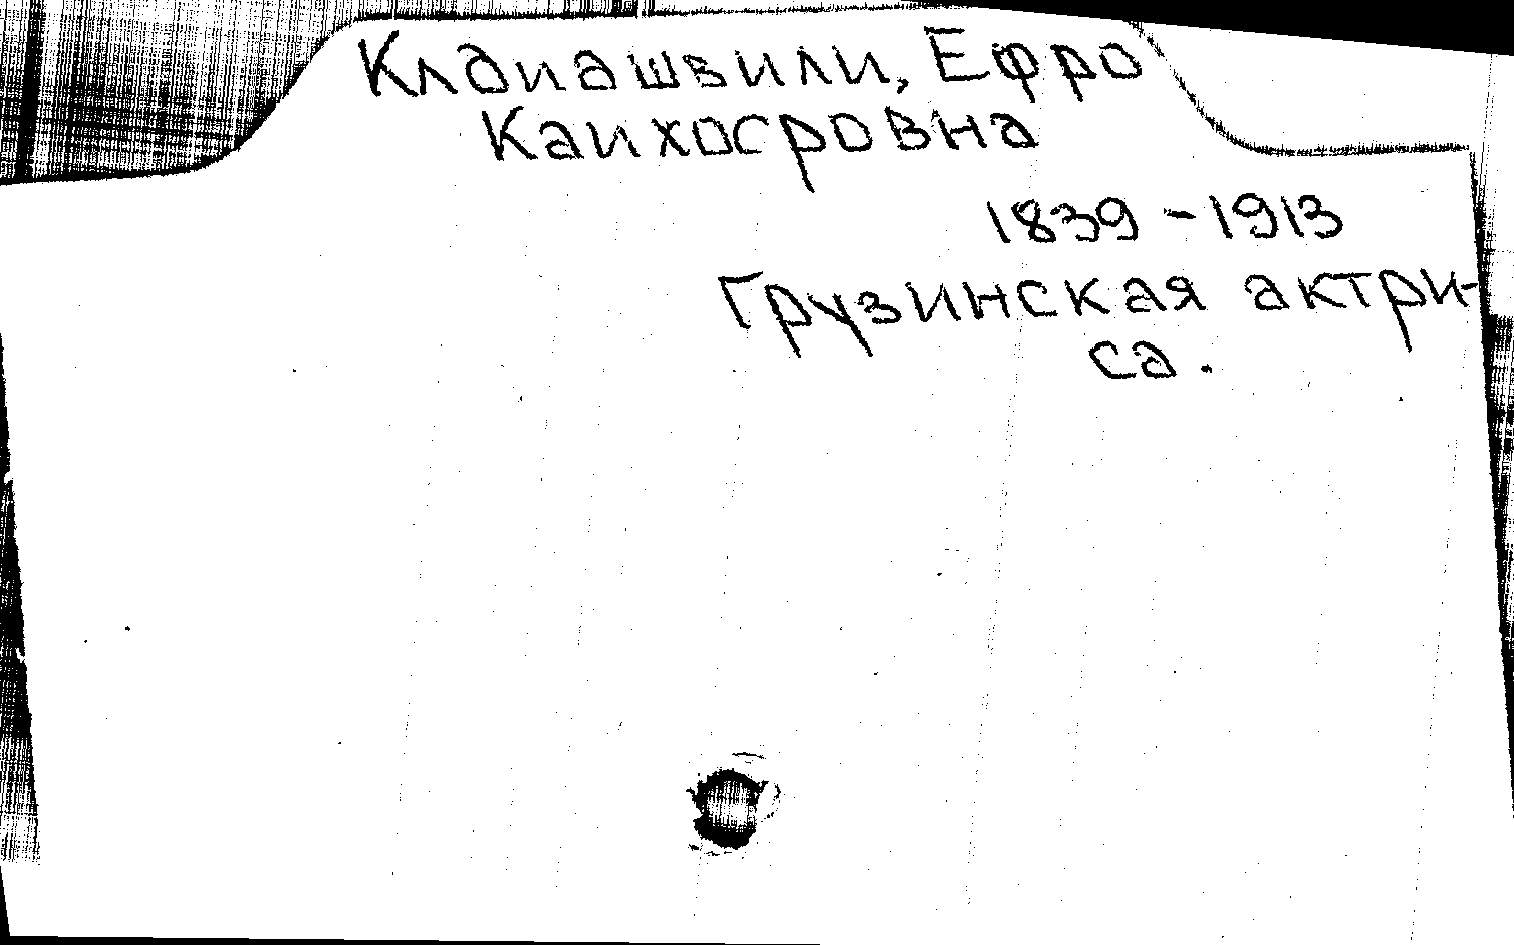 Клдиашвили, Ефро
Каихосровна
1839 - 1913
Грузинская актри-
са.